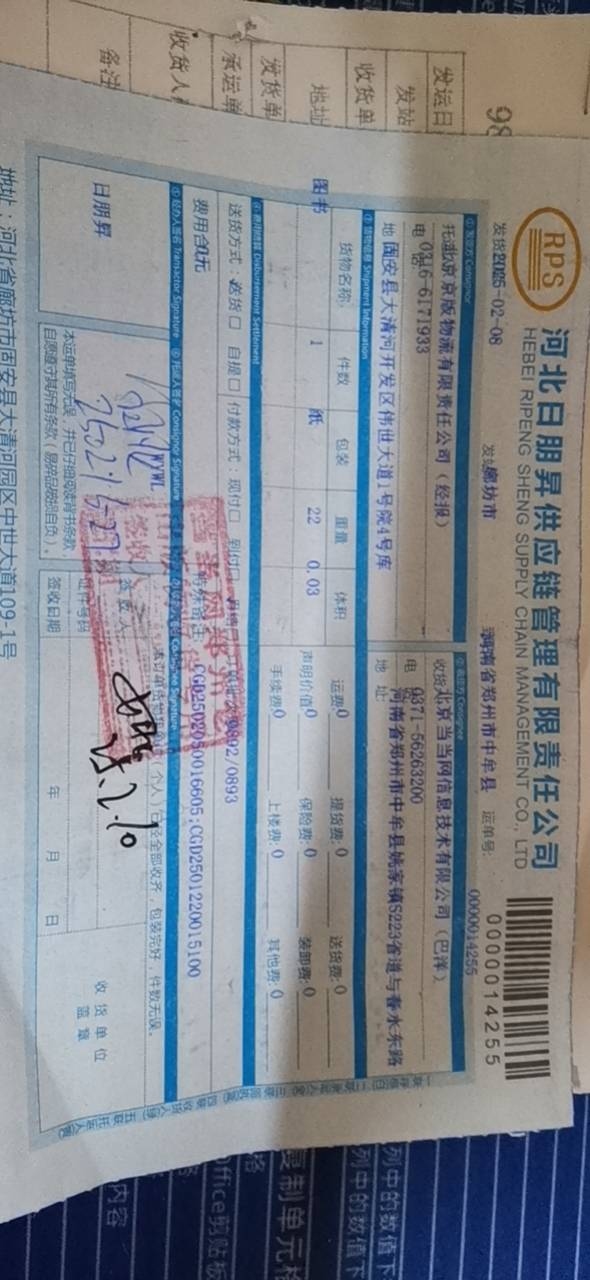 RPS
河北日朋昇供应链管理有限责任公司
HEBEI RIPENG SHENG SUPPLY CHAIN MANAGEMENT CO., LTD
00000014255
发货 2025-02-08
廊坊市
河南省郑州市中牟县
运单号:
0000014255
① 发货方 Consignor
② 收货方 Consignee
北京京版物流有限责任公司（经报）
收货 北京当当网信息技术有限公司（巴洋）
电 0316-6171933
电 0371-56263200
地 固安县大清河开发区伟世大道1号院4号库
地址 河南省郑州市中牟县姚家镇S223省道与春水东路
③ 货物信息 Shipment Information
货物名称: 件数 包装 重量 体积
运费:0 提货费:0 送货费:0
图书 1 纸 22 0.03
声明价值0 保险费:0 装卸费:0
手续费0 上楼费:0 其他费:0
④ 费用结算 Disbursement Settlement
送货方式: 送货口 自提口 付款方式: 现付口 到付口
0892/0893
费用合 0元
CGD2502050016605;CGD2501220015100
⑤ 经办人签名 Transactor Signature
⑥ 托运人签字 Consignor Signature
Consignee Signature
日朋昇
WYWL
（个人）已经全部收齐，包装完好，件数无误。
本运单填写无误，并已仔细阅读背书条款
自愿遵守其所有条款（易碎品破损自负）.
签收人
证件号码
签收日期
年 月 日
收货单位
盖章
25.2.10
地址：河北省廊坊市固安县大清河园区中世大道109-1号
98
发运日
发站
收货单
地址
发货单
承运单
收货人
备注
列中的数值下
列中的数值下
复制单元格
office剪贴板
内容